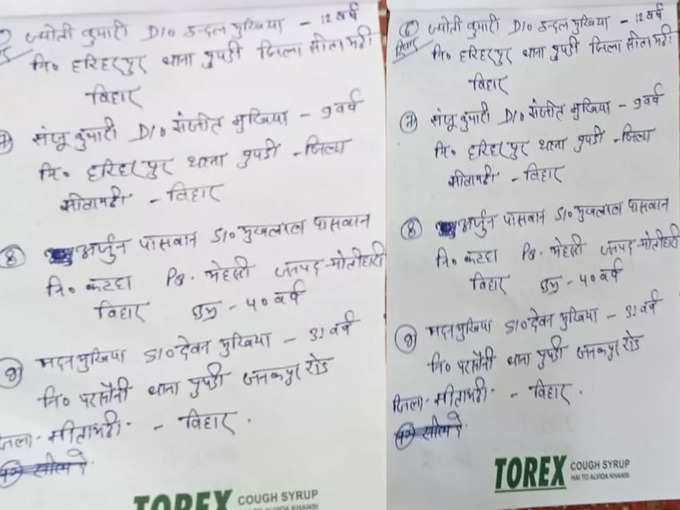 ज्योती कुमारी D/o कन्दल मुखिया - 12 वर्ष
नि० हरिहरपुर थाना पुपडी जिला सीतामढी
बिहार
संजू कुमारी D/o संजीत मुखिया - 9 वर्ष
नि० हरिहरपुर थाना पुपडी - जिला
सीतामढी - बिहार
⑧ अर्जुन पासवान S/o मुखलाल पासवान
नि० कटहा PS. मेहसी जनपद - मोतीहारी
बिहार उम्र - ५० वर्ष
⑨ मदन मुखिया S/o देवन मुखिया - 32 वर्ष
नि० परसौनी थाना पुपडी जनकपुर रोड
जिला - सीतामढी - बिहार.
TOREX COUGH SYRUP
ज्योती कुमारी D/o कन्दल मुखिया - 12 वर्ष
नि० हरिहरपुर थाना पुपडी जिला सीतामढी
बिहार
संजू कुमारी D/o संजीत मुखिया - 9 वर्ष
नि० हरिहरपुर थाना पुपडी - जिला
सीतामढी - बिहार
⑧ अर्जुन पासवान S/o मुखलाल पासवान
नि० कटहा PS. मेहसी जनपद - मोतीहारी
बिहार उम्र - ५० वर्ष
⑨ मदन मुखिया S/o देवन मुखिया - 32 वर्ष
नि० परसौनी थाना पुपडी जनकपुर रोड
जिला - सीतामढी - बिहार.
TOREX COUGH SYRUP
HAI TO ALVIDA KHANSI